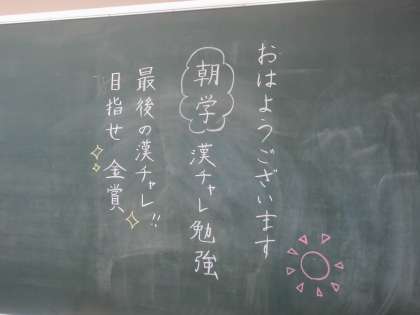 おはようございます
朝学 漢チャレ勉強
最後の漢チャレ!!
目指せ 金賞